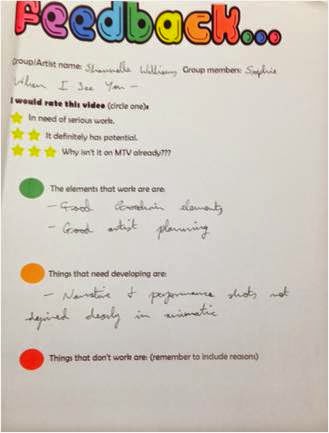 Feedback...
Group/Artist name: Shannelle Williams Group members: Sophie
When I See You -
I would rate this video (circle one):
In need of serious work.
It definitely has potential.
Why isn't it on MTV already???
The elements that work are are:
- Good elements
- Good artist planning
Things that need developing are:
- Narrative & performance shots not
defined clearly in animatic
Things that don't work are: (remember to include reasons)